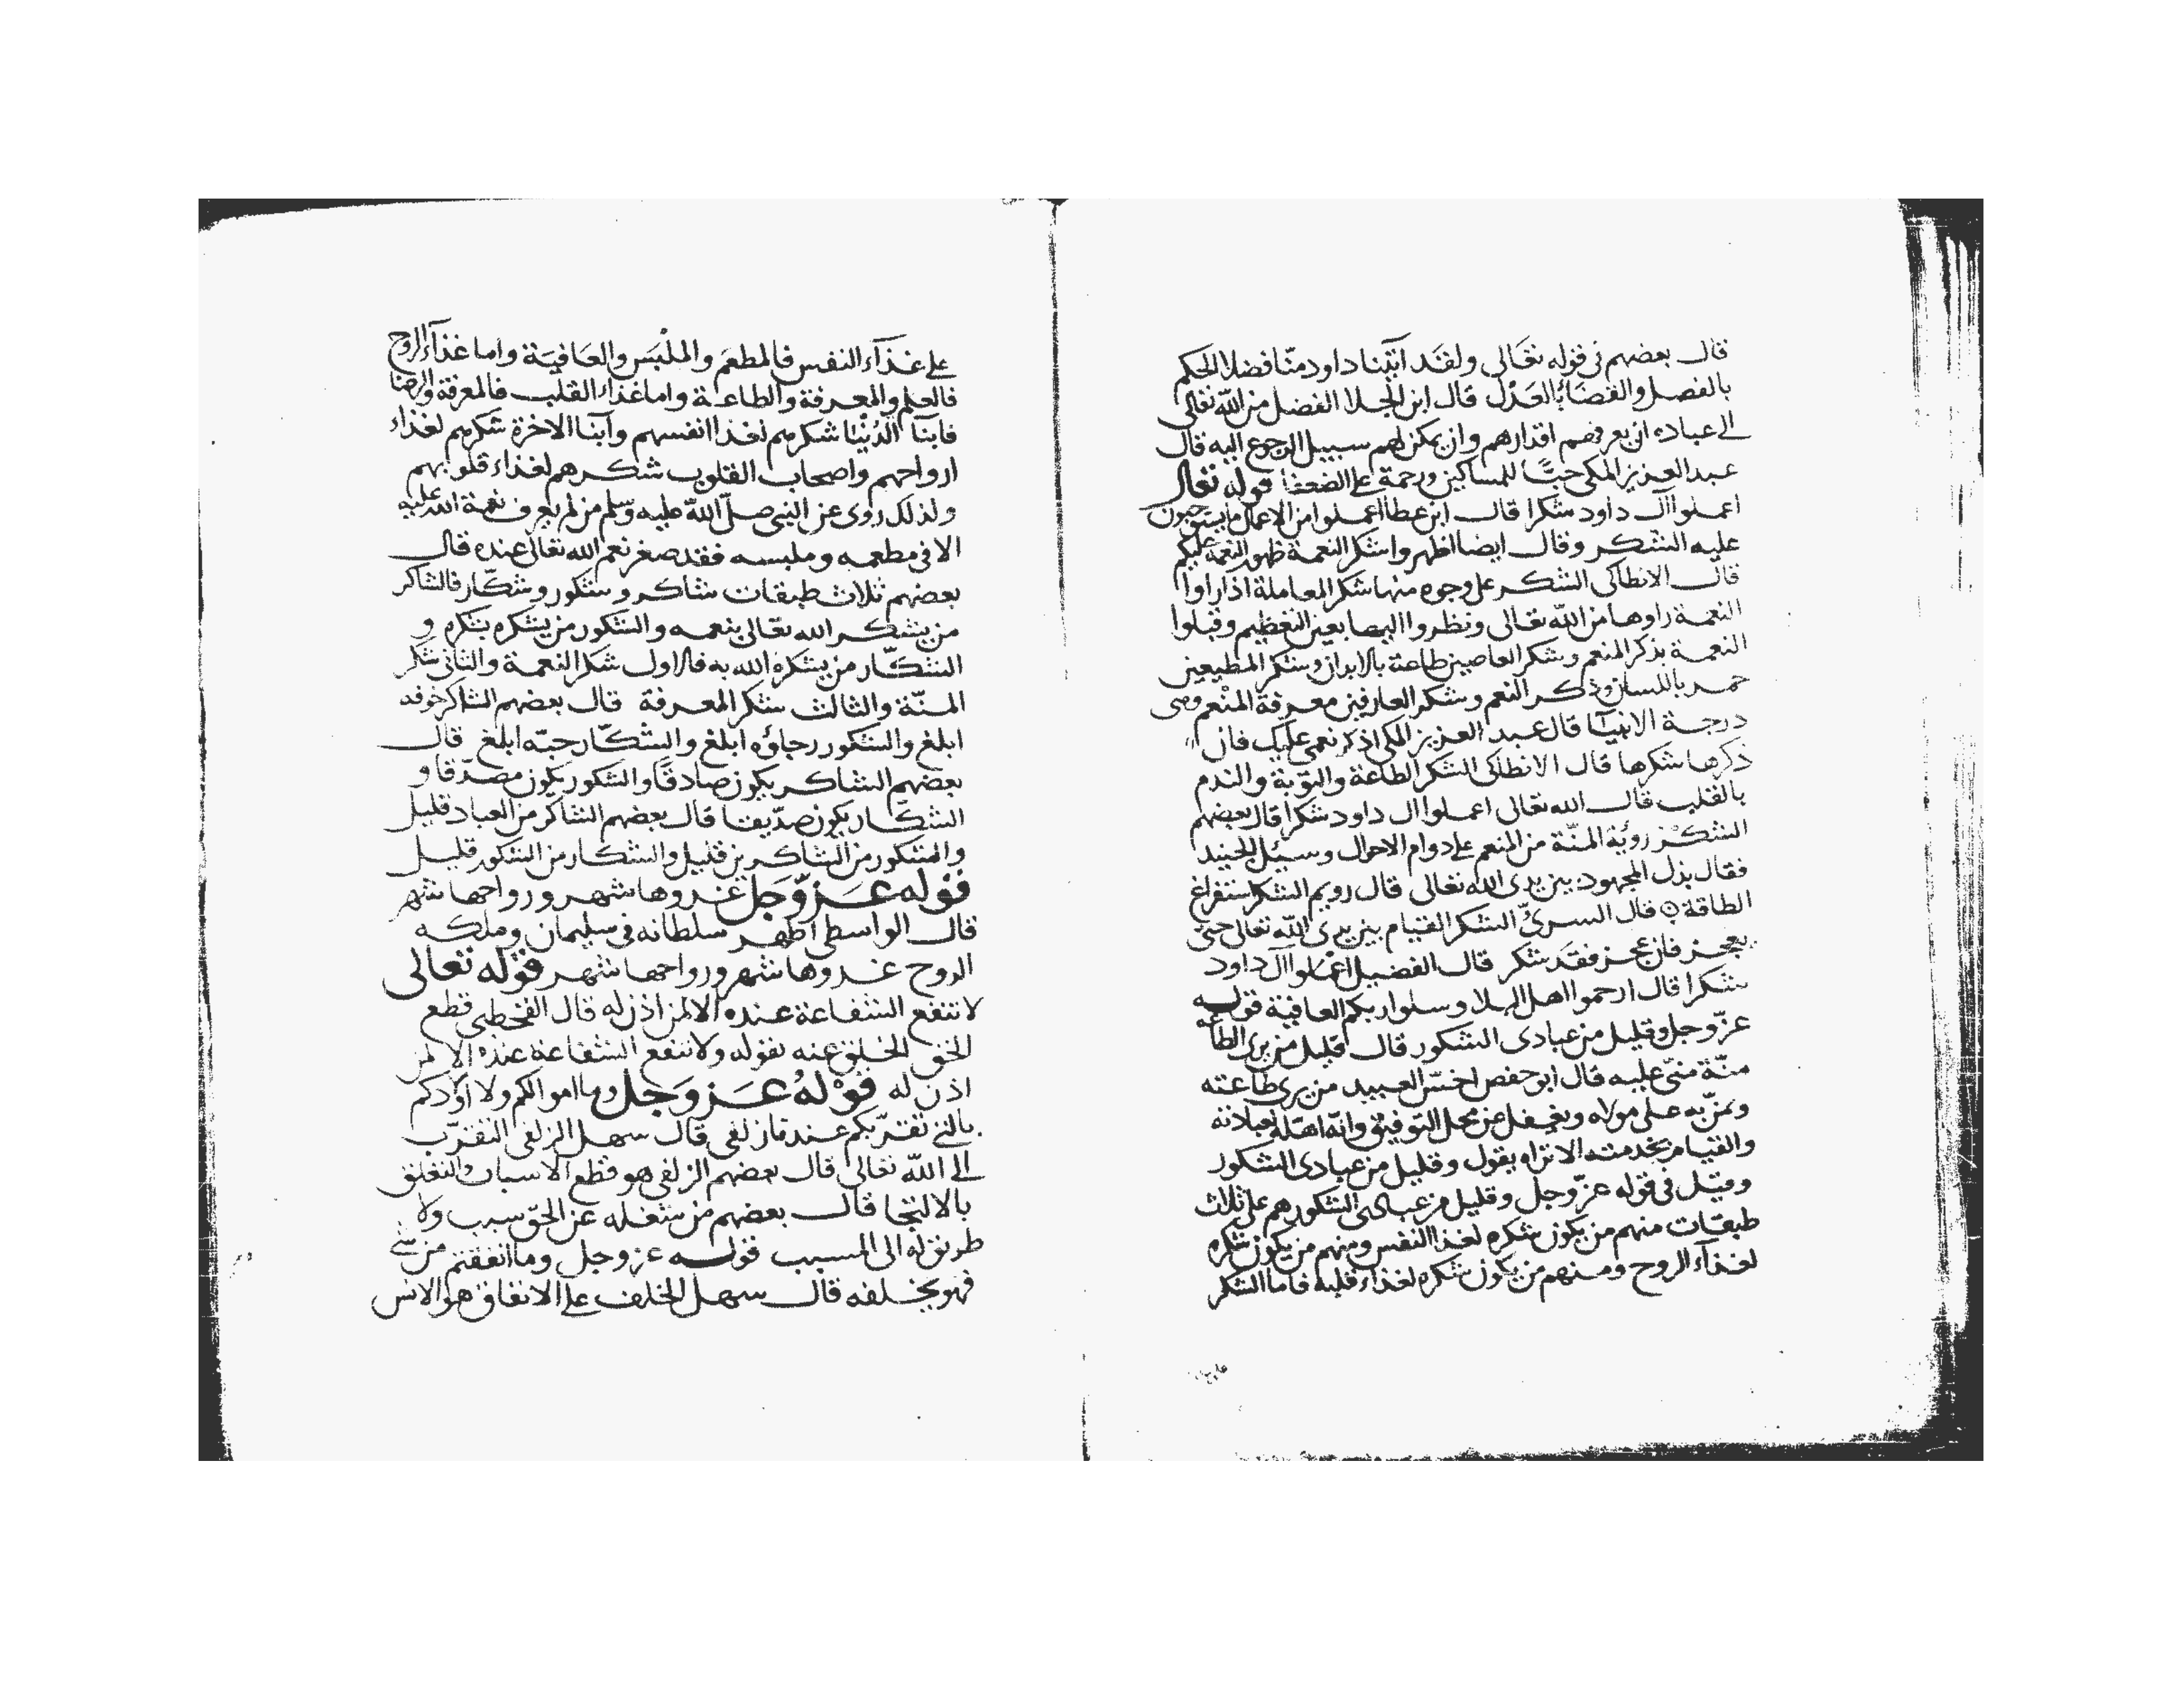 قال بعضهم في قوله تعالى ولقد آتينا داود منّا فضلا الحكم
بالفصل والقضاء بالعَدْل قال ابن الجلا الفضل من الله تعالى
الى عباده ان يعرفهم اقدارهم وان يمكن لهم سبيل الرجوع اليه قال
عبد العزيز المكي حبًّا للمساكين ورحمة على الضعفا قوله تعالى
اعملوا آل داود شكرا قال ابن عطا اعملوا من الاعمال ما يستوجبون
عليه الشكر وقال ايضا اظهروا شكر النعمة ظهور النعمة عليكم
قال الانطاكي الشكر على وجوه منها شكر المعاملة اذا راوا
النعمة راوها من الله تعالى ونظروا اليها بعين التعظيم وقبلوا
النعمة بذكر المنعم وشكر العاصين طاعة بالابدان وشكر المطيعين
حمد باللسان وذكر النعم وشكر العارفين معرفة المنعم وهى
درجة الانبيا قال عبد العزيز المكي اذكر نعمي عليك فان
ذكرها شكرها قال الانطاكي الشكر الطاعة والتوبة والندم
بالقلب قال الله تعالى اعملوا ال داود شكرا قال بعضهم
الشكر رؤية المنّة من المنعم على دوام الاحوال وسئل الجنيد
فقال بذل المجهود بين يدى الله تعالى قال رويم الشكر استفراغ
الطاقة قال السرىّ الشكر القيام بين يدى الله تعالى حتى
يعجز فان عجز فقد شكر قال الفضيل اعملوا آل داود
شكرا قال ارحموا اهل البلا وسلوا ربكم العافية قوله
عزّ وجل وقليل من عبادى الشكور قال قليل من يرى الطاعة
منّة منّي عليه قال ابو حفص اخسّ العبيد من يرى طاعته
ويمنّ به على مولاه ويغفل عن محل التوفيق وانّه اهّله لعبادته
والقيام بخدمته الا تراه يقول وقليل من عبادى الشكور
وقيل في قوله عزّ وجل وقليل من عبادى الشكور هم على ثلاث
طبقات منهم من يكون شكره لغذا النفس ومنهم من يكون شكره
لغذآء الروح ومنهم من يكون شكره لغذاء قلبه فاما الشكر
على غذآء النفس فالمطعَم والملْبَس والعَافيَة واما غذآء الروح
فالعلم والمعرفة والطاعة واما غذاء القلب فالمعرفة والرضا
فابنآ الدُنْيا شكرهم لغذا انفسهم وآبنآ الاخرة شكرهم لغذاء
ارواحهم واصحاب القلوب شكرهم لغذاء قلوبهم
ولذلك روى عن النبى صلّى اللّه عليه وسلم من لم يعرف نعمة الله عليه
الا في مطعمه وملبسه فقد صغر نعم الله تعالى عنده قال
بعضهم ثلاث طبقات شاكر وشكور وشكّار فالشاكر
من يشكر الله تعالى بنعمه والشكور من يشكره بشكره و
الشكّار من يشكره الله به فالاول شكر النعمة والثانى شكر
المنّة والثالث شكر المعرفة قال بعضهم الشاكر خوفه
ابلغ والشكور رجاؤه ابلغ والشكّار حبّه ابلغ قال
بعضهم الشاكر يكون صادقًا والشكور يكون مصدّقا و
الشكّار يكون صدّيقا قال بعضهم الشاكر من العباد قليل
والشكور من الشاكرين قليل والشكار من الشكور قليل
قوله عَزّ وَجَل غدوها شهر ورواحها شهر
قال الواسطي اظهر سلطانه في سليمان وملكه
الروح غدوها شهر ورواحها شهر قوله تعالى
لا تنفع الشفاعة عنده الا لمن اذن له قال القحطبى قطع
الحق الخلق عنه بقوله ولا تنفع الشفاعة عنده الا لمن
اذن له قوْلهُ عَز وَجَل وما اموالكم ولا اولادكم
بالتى تقرّبكم عندنا زلفى قال سهل الزلفى التقرّب
الى اللّه تعالى قال بعضهم الزلفى هو قطع الاسباب والتعلق
بالالتجا قال بعضهم من شغله عن الحقّ سبب ولا
طريق له الى المسبب قوله عز وجل وما انفقتم من شى
فهو يخلفه قال سهل الخلف على الانفاق هو الانس